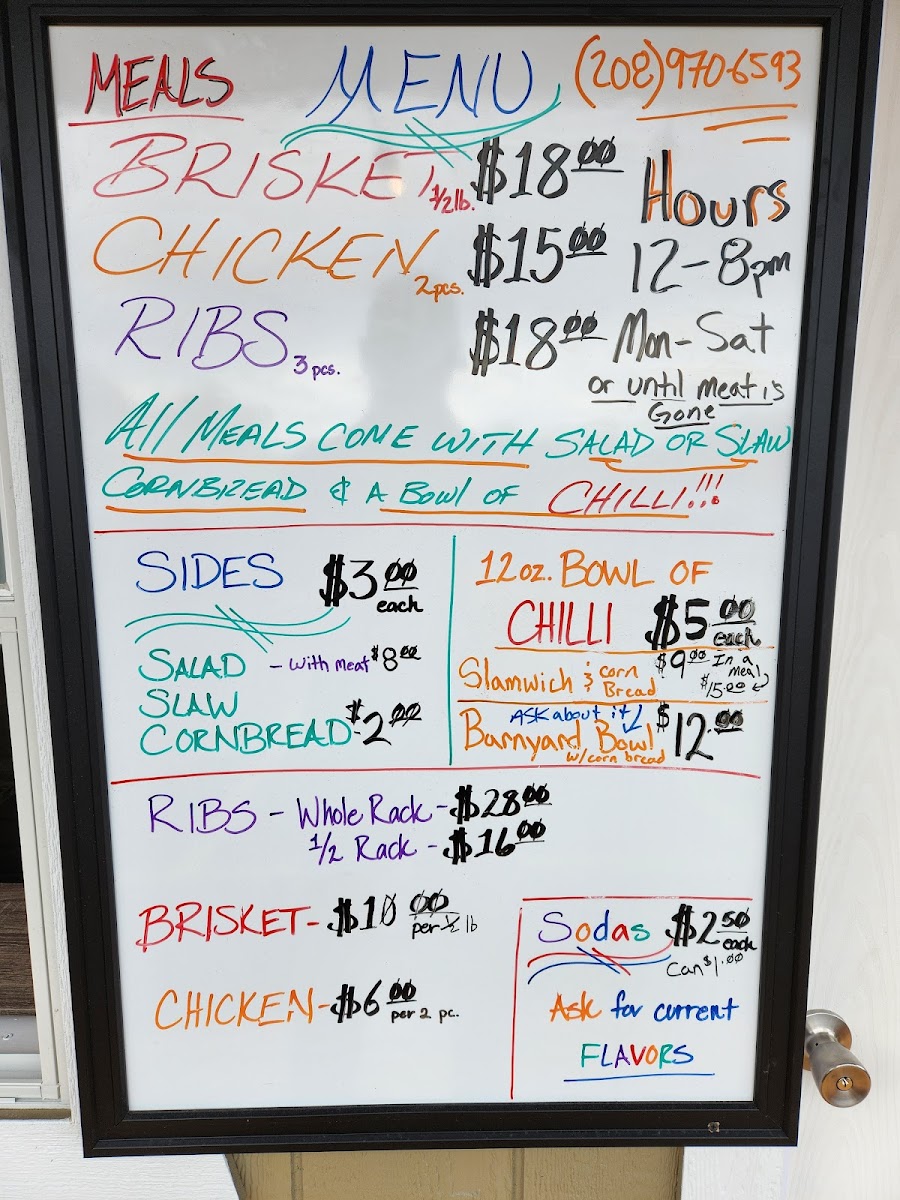 MEALS MENU (208)970-6593
BRISKET 1/2 lb. $18.00
CHICKEN 2 pcs. $15.00
RIBS 3 pcs. $18.00
Hours
12-8pm
Mon-Sat
or until meat is
Gone
All MEALS COME WITH SALAD OR SLAW
CORNBREAD & A BOWl OF CHILLI!!!
SIDES $3.00 each
SALAD - with meat $8.00
SLAW
CORNBREAD - $2.00
12oz. BOWL OF
CHILLI $5.00 each
Slamwich & corn Bread $9.00 In a meal $15.00
ASK about it
Barnyard Bowl $12.00
w/corn bread
RIBS - Whole Rack - $28.00
1/2 Rack - $16.00
BRISKET - $10.00 per 1/2 lb
CHICKEN - $6.00 per 2 pc.
Sodas $2.50 each
Can $1.00
Ask for current
FLAVORS